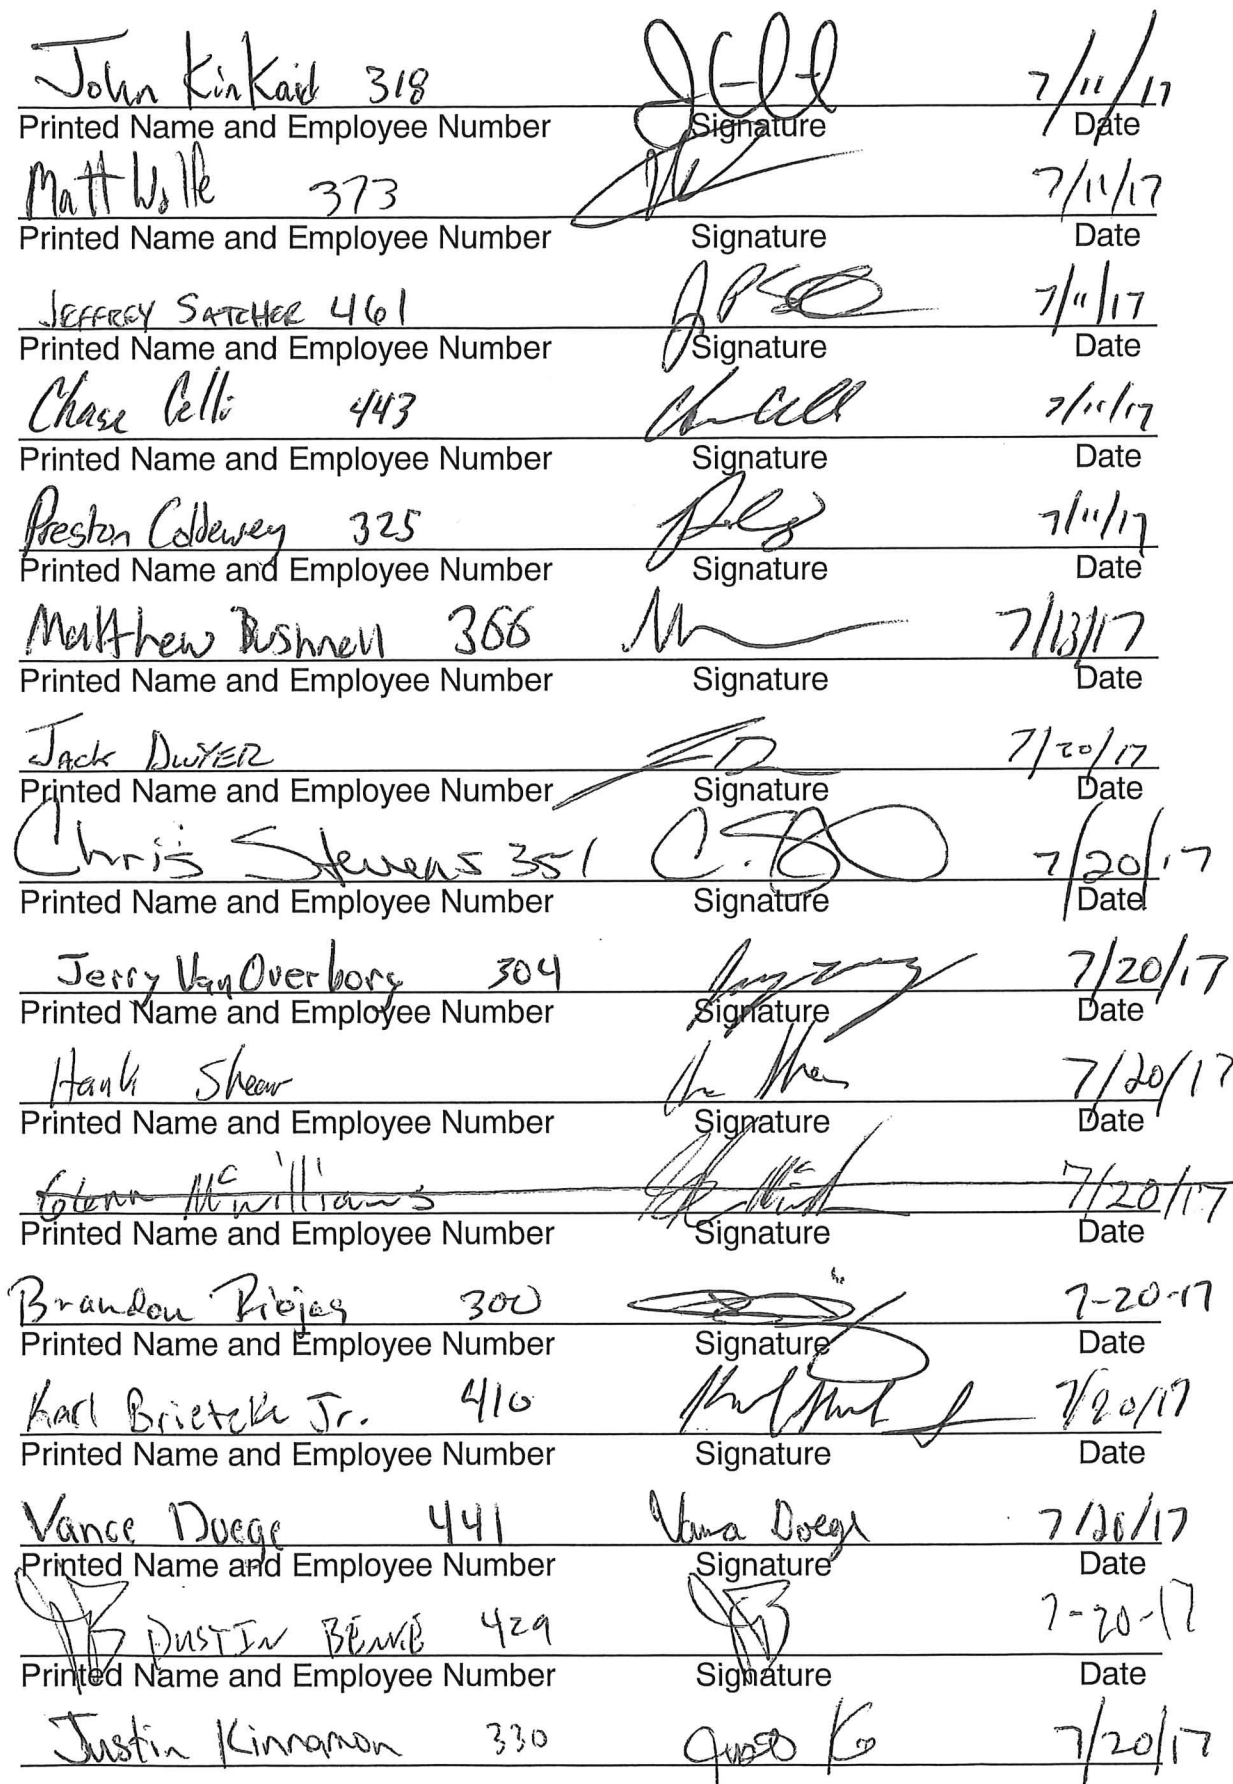 John KinKaid 318 7/11/17
Printed Name and Employee Number Signature Date
Matt Wolfe 373 7/11/17
Printed Name and Employee Number Signature Date
JEFFREY SATCHER 461 7/11/17
Printed Name and Employee Number Signature Date
Chase Celli 443 7/11/17
Printed Name and Employee Number Signature Date
Preston Coldewey 325 7/11/17
Printed Name and Employee Number Signature Date
Matthew Bushnell 366 7/13/17
Printed Name and Employee Number Signature Date
Jack DWYER JD 7/20/17
Printed Name and Employee Number Signature Date
Chris Stevens 351 7/20/17
Printed Name and Employee Number Signature Date
Jerry VanOverborg 304 7/20/17
Printed Name and Employee Number Signature Date
Hank Shear 7/20/17
Printed Name and Employee Number Signature Date
Glenn McWilliams 7/20/17
Printed Name and Employee Number Signature Date
Brandon Riojas 300 7-20-17
Printed Name and Employee Number Signature Date
Karl Brietzke Jr. 410 7/20/17
Printed Name and Employee Number Signature Date
Vance Doege 441 Vance Doege 7/20/17
Printed Name and Employee Number Signature Date
DUSTIN BENKE 429 7-20-17
Printed Name and Employee Number Signature Date
Justin Kinnamon 330 7/20/17